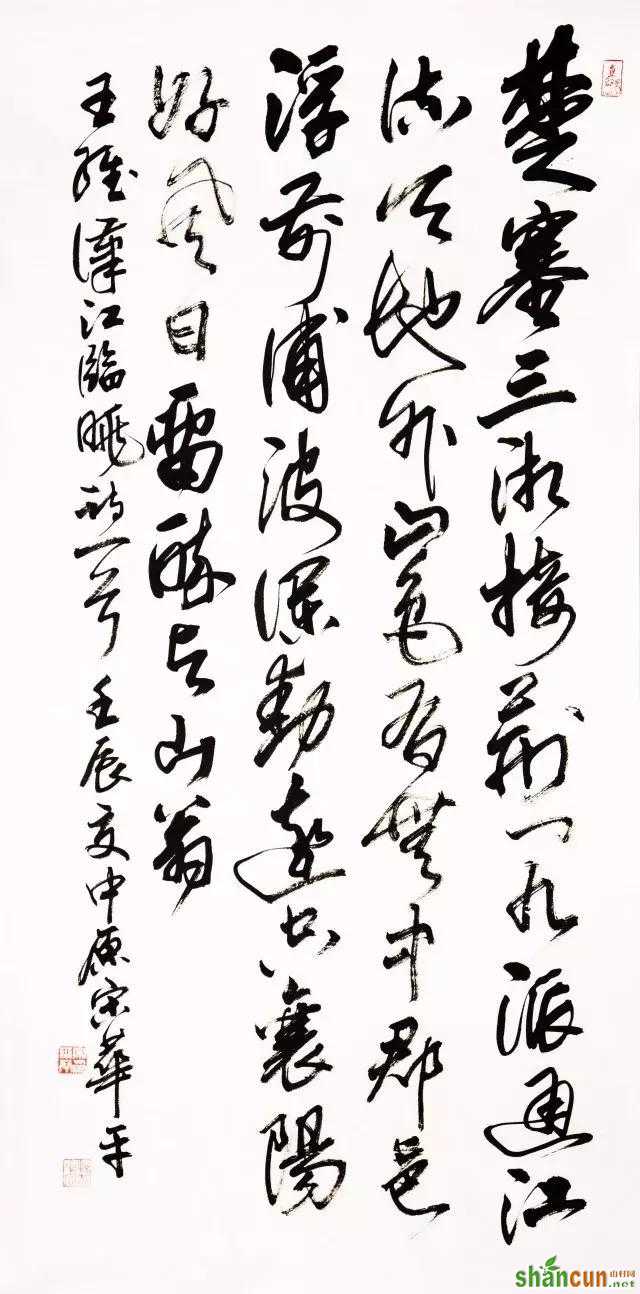 楚塞三湘接荆门九派通江
流天地外山色有無中郡邑
浮前浦波瀾動遠空襄陽
好風日留醉与山翁
王維漢江臨眺詩一首 壬辰夏中原宋華平
shancun 山村网
.net